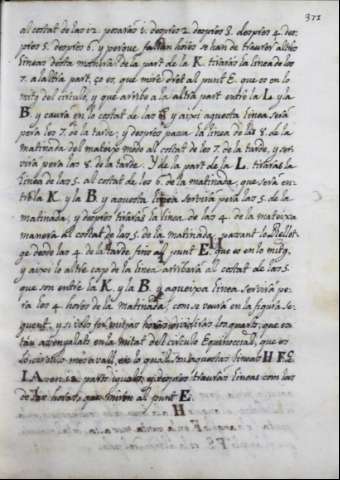 371
al costat de las 12. posaràs 1. despres 2. despres 3. despres 4. des-
pres 5. despres 6. y perque faltan horas se han de traurer altres
lineas desta manera: de la part de la K. tiraràs la linea de les
7. a la altra part, ço es, que mire dret al punt E. que es en lo
mitg del circulo, y que arribe a la altra part entre la L. y la
B. y caurà en lo costat de las 8 y aixi aquesta linea serà
pera les 7. de la tarde; y despres passa la linea de las 8. de la
matinada del mateix modo al costat de les 7. de la tarde, y ser-
virà pera las 8. de la tarde. Y de la part de la L. tiraràs la
linea de las 5. al costat de les 6. de la matinada, que serà en-
tre la K. y la B. y aquesta linea servirà pera las 5. de la
matinada; y despres tiraràs la linea de las 4. de la mateixa
manera al costat de las 5. de la matinada, passant lo Rellot-
ge desde las 4. de la tarde fins al punt E. que es en lo mitg,
y aixi lo altre cap de la linea arribarà al costat de las 5.
que son entre la K. y la B. y aqueixa linea servirà pe-
ra les 4. horas de la matinada; com se veurà en la figura se-
guent. y si vols
estan en la mitat del circulo Equinoccial, que es
en lo qual aquestas lineas H E G
parts iguals, y despres trauràs lineas
al punt E.
H